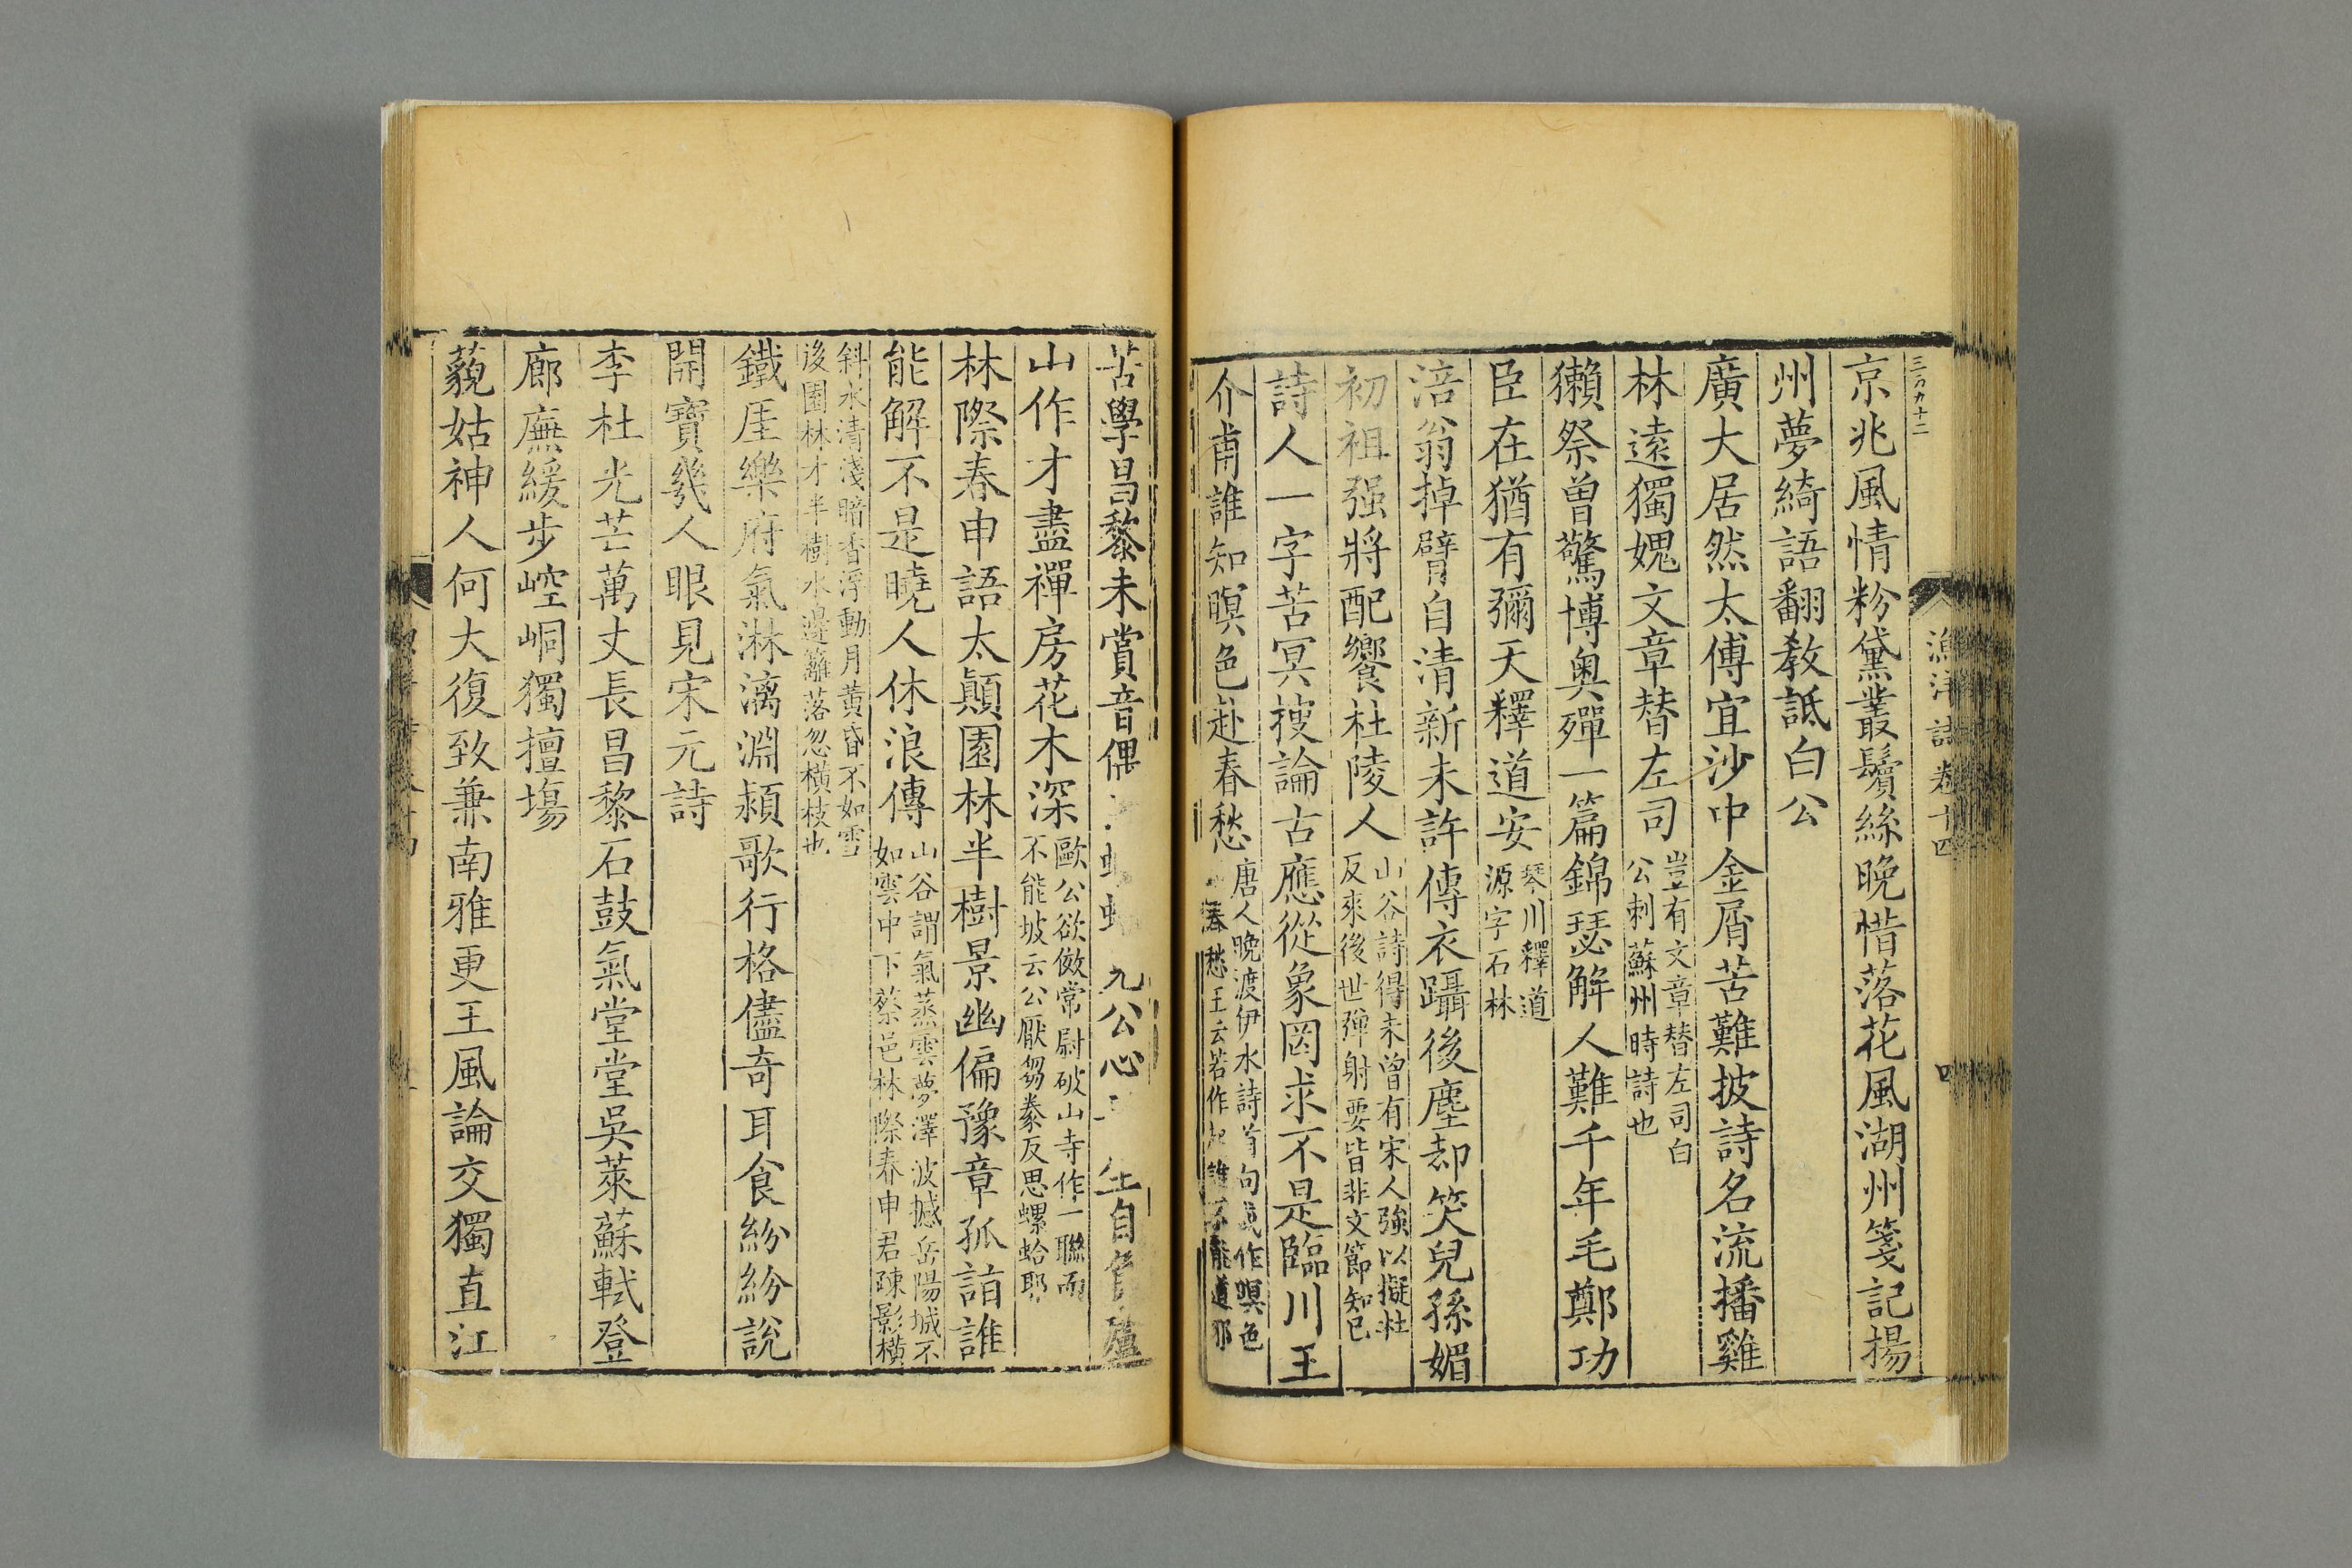 漁洋詩卷十四
京兆風情粉黛叢鬢絲晚惜落花風湖州箋記揚
州夢綺語翻教詆白公
廣大居然太傅宜沙中金屑苦難披詩名流播雞
林遠獨媿文章替左司
豈有文章替左司白
公刺蘇州時詩也
獺祭曾驚博奧殫一篇錦瑟解人難千年毛鄭功
臣在猶有彌天釋道安
琴川釋道
源字石林
涪翁掉臂自清新未許傳衣躡後塵却笑兒孫媚
初祖强將配饗杜陵人
山谷詩得未曾有宋人強以擬杜
反來後世彈射要皆非文節知己
詩人一字苦冥搜論古應從象罔求不是臨川王
介甫誰知暝色赴春愁
唐人晚渡伊水詩首句或作暝色
春愁王云若作起誰不能道耶
苦學昌黎未賞音偶 九公心 生自負廬
山作才盡禪房花木深
歐公欲倣常尉破山寺作一聯而
不能坡云公厭芻豢反思螺蛤耶
林際春申語太顛園林半樹景幽偏豫章孤詣誰
能解不是曉人休浪傳
山谷謂氣蒸雲夢澤波撼岳陽城不
如雲中下蔡邑林際春申君疎影橫
斜水清淺暗香浮動月黃昏不如雪
後園林才半樹水邊籬落忽橫枝也
鐵厓樂府氣淋漓淵潁歌行格儘奇耳食紛紛說
開寶幾人眼見宋元詩
李杜光芒萬丈長昌黎石鼓氣堂堂吳萊蘇軾登
廊廡緩步崆峒獨擅場
藐姑神人何大復致兼南雅更王風論交獨直江